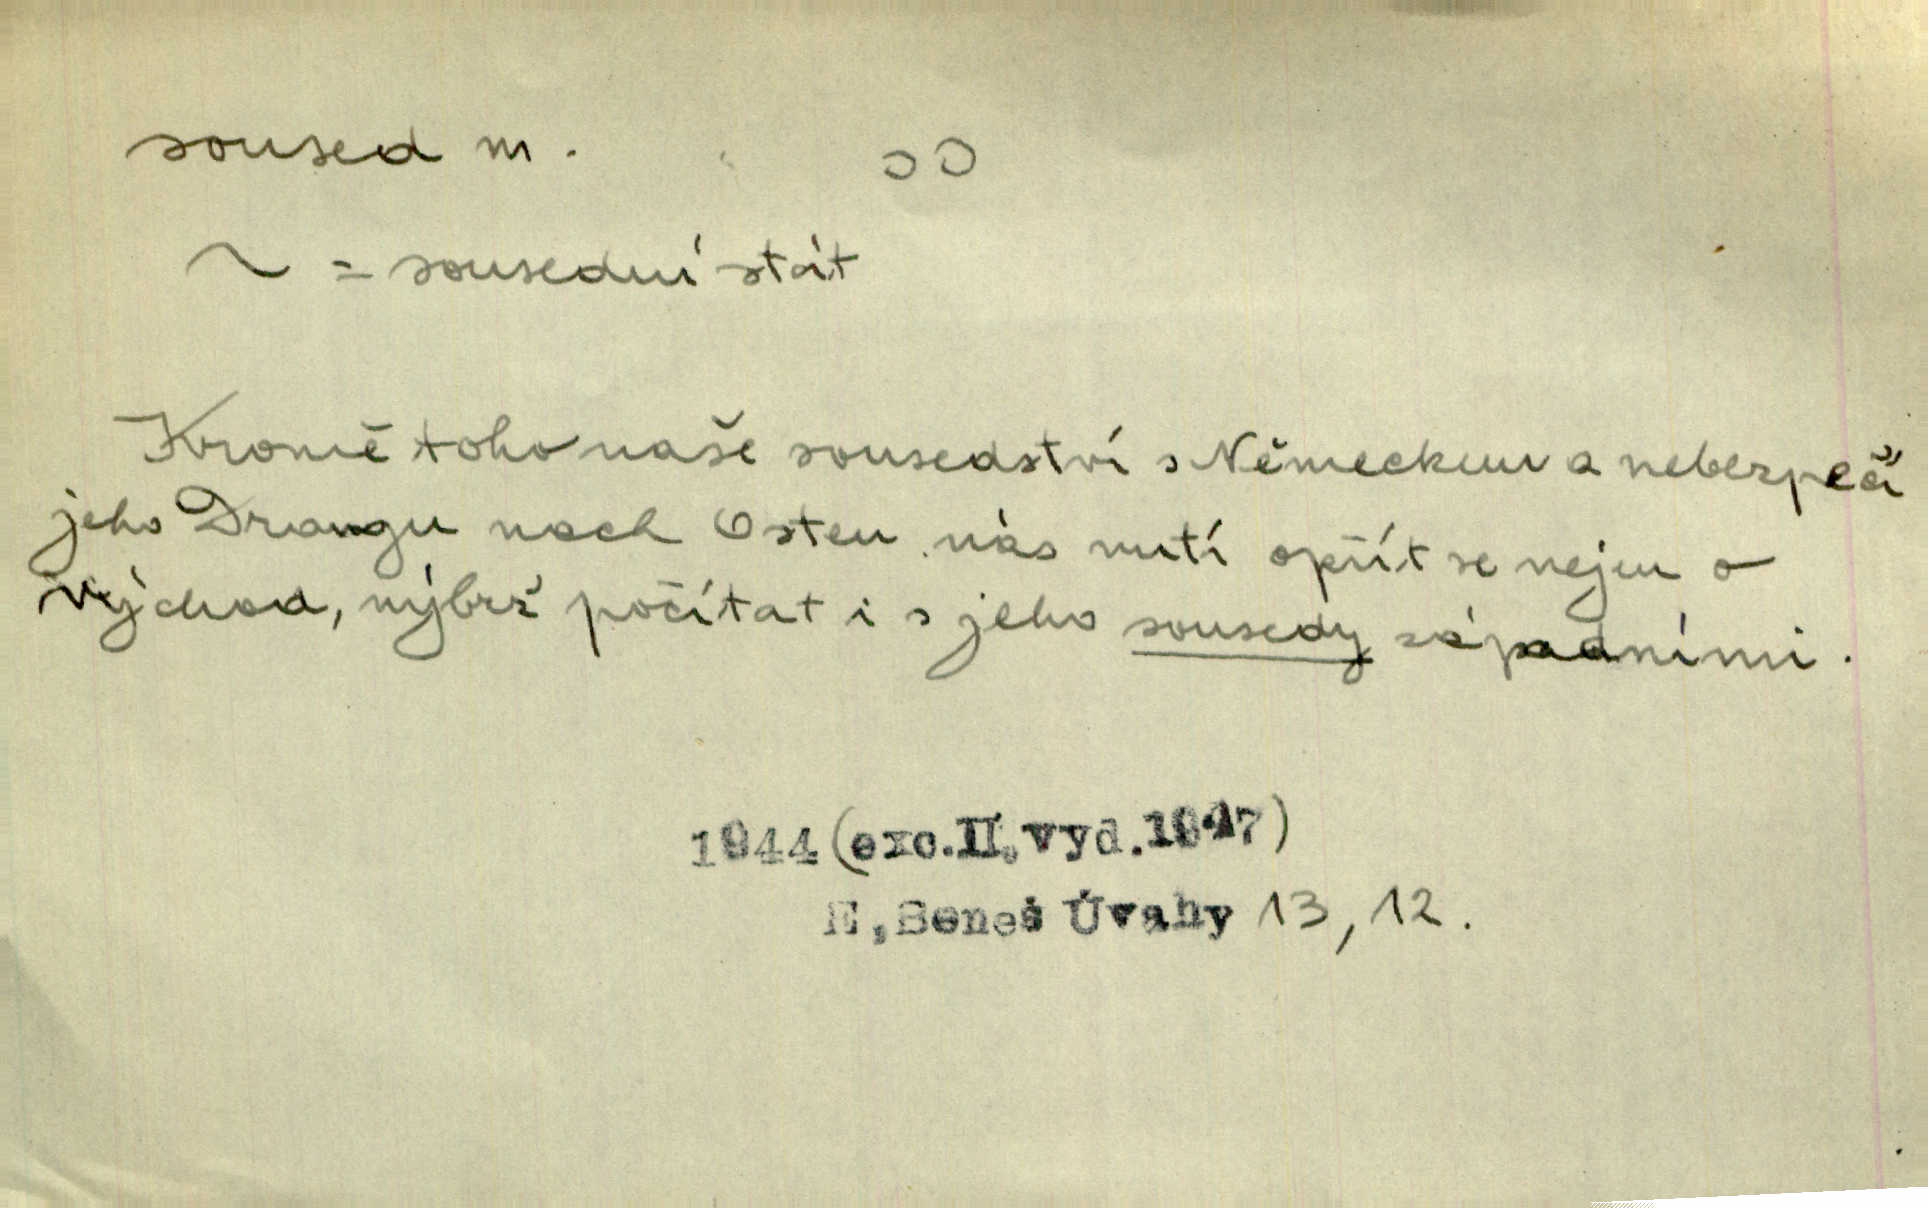 soused m.
~ = sousední stát
Kromě toho naše sousedství s Německem a nebezpečí
jeho Drangu nach Osten nás nutí opřít se nejen o
východ, nýbrž počítat i s jeho sousedy západními.
1944 (exc. II. vyd. 1947)
E. Beneš Úvahy 13, 12.